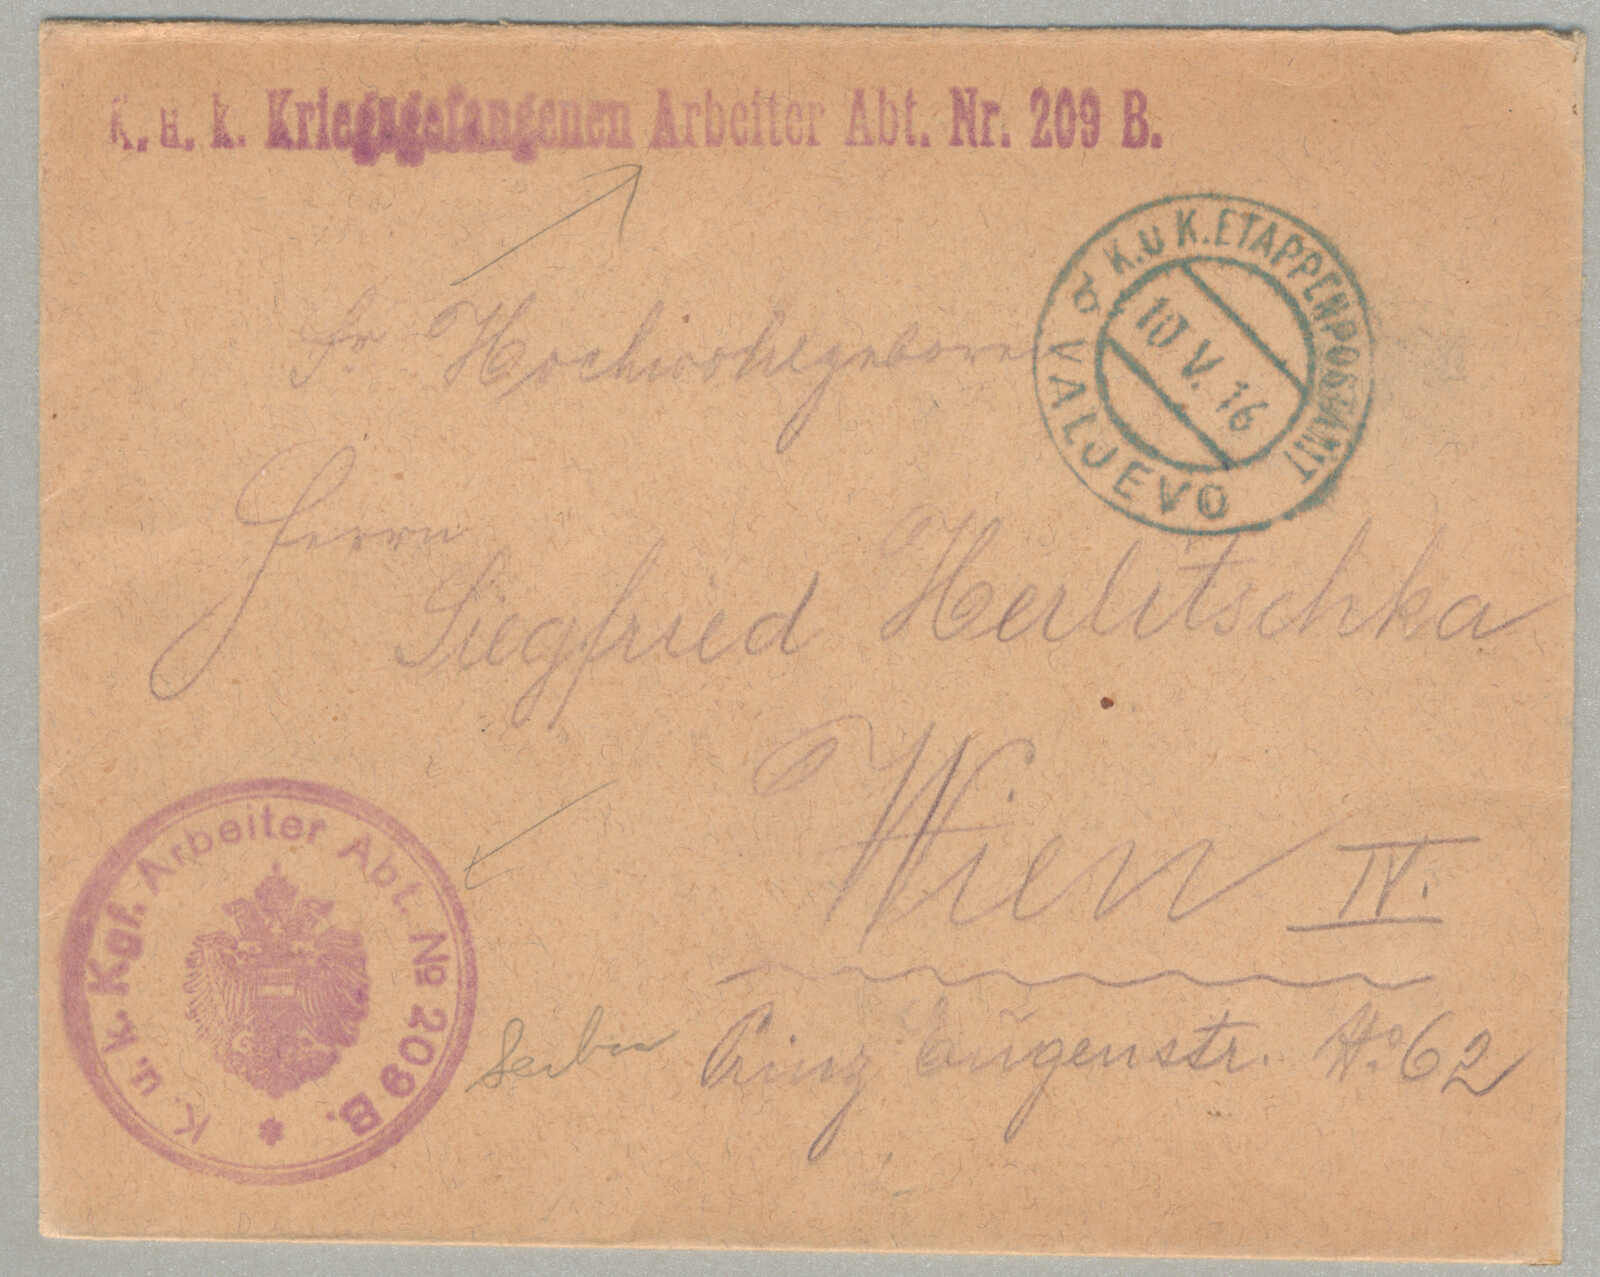 K. u. k. Kriegsgefangenen Arbeiter Abt. Nr. 209 B.
K. U K. ETAPPENPOSTAMT
VALJEVO a
10. V. 16
Sr Hochwohlgeboren
Herrn
Siegfried Herlitschka
Wien IV.
Prinz Eugenstr. No 62
Serbien
K. u. k. Kgf. Arbeiter Abt. No 209 B.